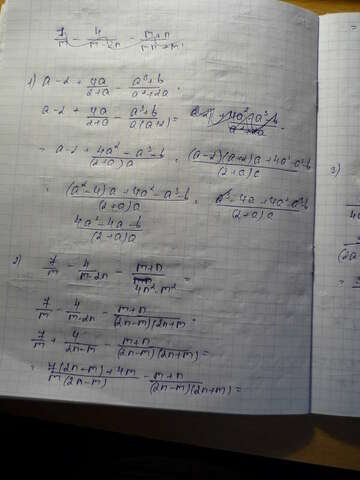 7/m - 4/(m-2n) - (m+n)/
1) a-2 + 4a/(2+a) - (a³+b)/(a²+2a) .
a-2 + 4a/(2+a) - (a³+b)/(a(a+2)) =
= a-2 + (4a² - a³ - b)/((2+a)a) = ((a-2)(a+2)a + 4a² - a³ - b)/((2+a)a)
= ((a²-4)a + 4a² - a³ - b)/((2+a)a) = (a³ - 4a + 4a² - a³ - b)/((2+a)a)
(4a² - 4a - b)/((2+a)a)
2) 7/m - 4/(m-2n) - (m+n)/(4n²-m²) =
7/m - 4/(m-2n) - (m+n)/((2n-m)(2n+m)) =
7/m + 4/(2n-m) - (m+n)/((2n-m)(2n+m)) =
= (7(2n-m)+4m)/(m(2n-m)) - (m+n)/((2n-m)(2n+m)) =
3)